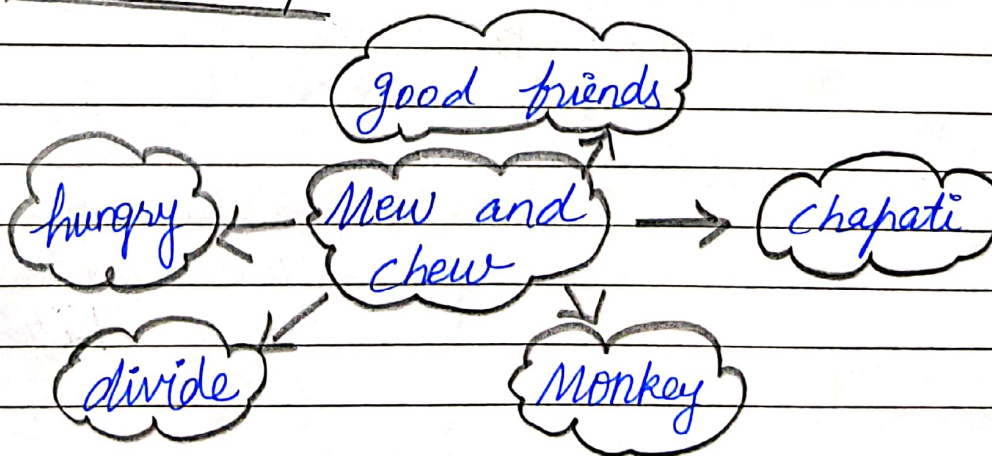 good friends
hungry
Mew and
chew
chapati
divide
Monkey